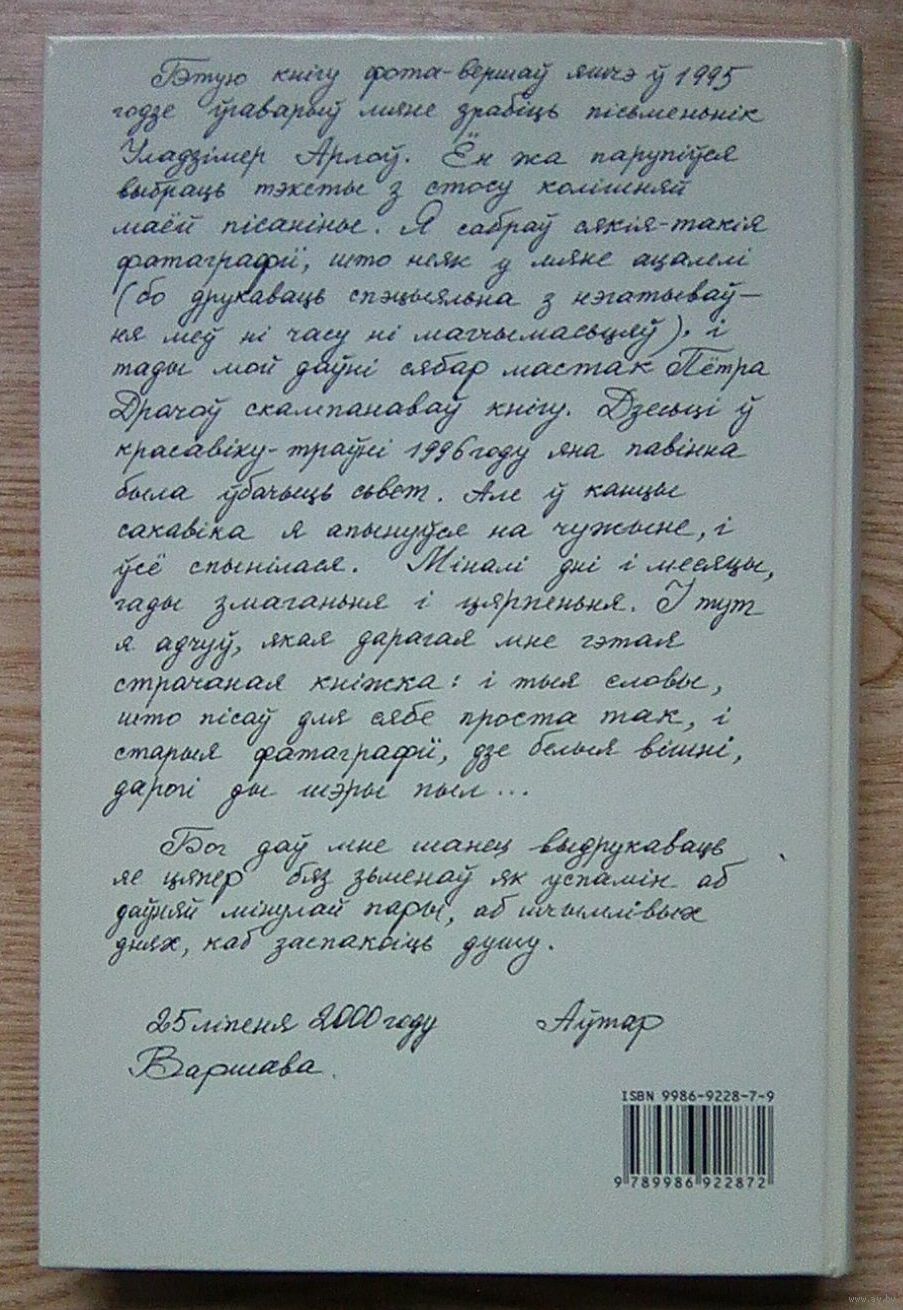 Гэтую кнігу фота-вершаў яшчэ ў 1995
годзе ўгаварыў мяне зрабіць пісьменьнік
Уладзімер Арлоў. Ён жа парупіўся
выбраць тэксты з стосу колішняй
маёй пісаніны. Я сабраў сякія-такія
фатаграфіі, што неяк у мяне ацалелі
(бо друкаваць спэцыяльна з нэгатываў –
ня меў ні часу ні магчымасьцяў). і
тады мой даўні сябар мастак Пётра
Драчоў скампанаваў кнігу. Дзесьці ў
красавіку-траўні 1996 году яна павінна
была ўбачыць сьвет. Але ў канцы
сакавіка я апынуўся на чужыне, і
ўсё спынілася. Міналі дні і месяцы,
гады змаганьня і цярпеньня. І тут
я адчуў, якая дарагая мне гэтая
страчаная кніжка: і тыя словы,
што пісаў для сябе проста так, і
старыя фатаграфіі, дзе белыя вішні,
дарогі ды шэры пыл...
Бог даў мне шанец выдрукаваць
яе цяпер бяз зьменаў як успамін аб
даўняй мінулай пары, аб шчымлівых
днях, каб заспакоіць душу.
25 ліпеня 2000 году Аўтар
Варшава.
ISBN 9986-9228-7-9
9 789986 922872
www.ay.by